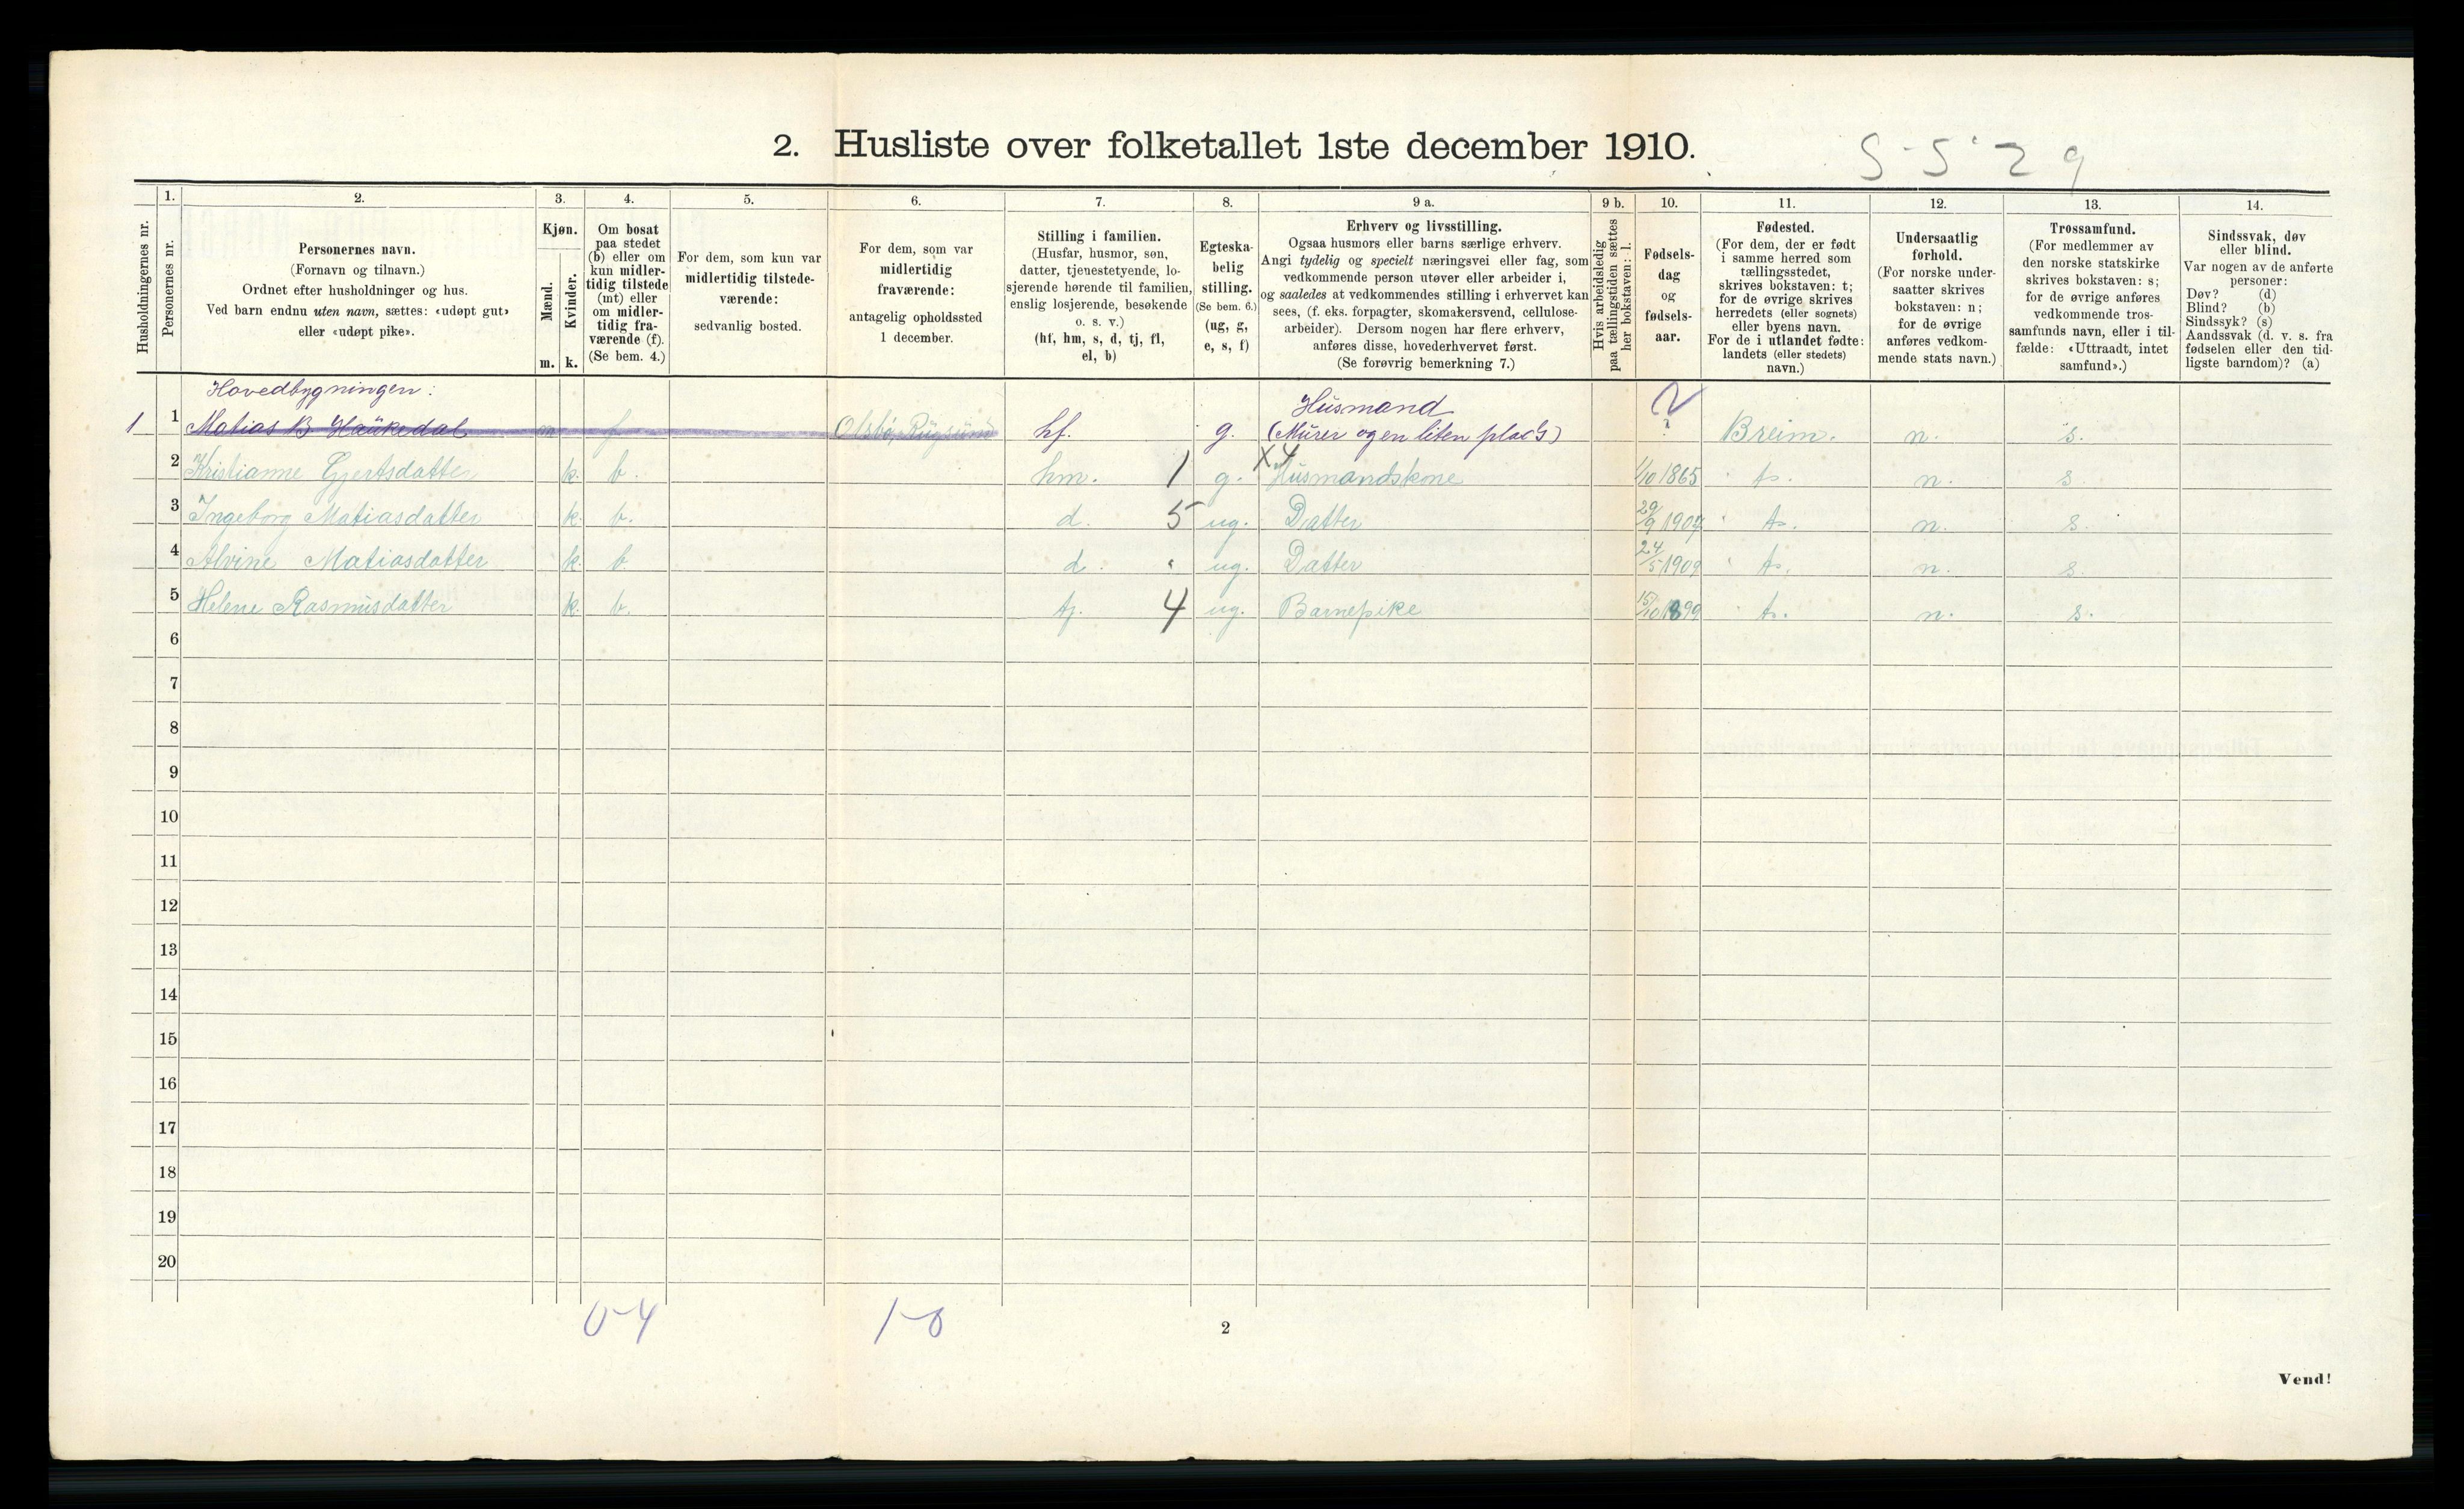 2. Husliste over folketallet 1ste december 1910.
S-5 29
Husholdningernes nr.
1.
Personernes nr.
2.
Personernes navn.
(Fornavn og tilnavn.)
Ordnet efter husholdninger og hus.
Ved barn endnu uten navn, sættes: «udøpt gut»
eller «udøpt pike».
3.
Kjøn.
Mænd.
Kvinder.
m. k.
4.
Om bosat
paa stedet
(b) eller om
kun midler-
tidig tilstede
(mt) eller
om midler-
tidig fra-
værende (f).
(Se bem. 4.)
5.
For dem, som kun var
midlertidig tilstede-
værende:
sedvanlig bosted.
6.
For dem, som var
midlertidig
fraværende:
antagelig opholdssted
1 december.
7.
Stilling i familien.
(Husfar, husmor, søn,
datter, tjenestetyende, lo-
sjerende hørende til familien,
enslig losjerende, besøkende
o. s. v.)
(hf, hm, s, d, tj, fl,
el, b)
8.
Egteska-
belig
stilling.
(Se bem. 6.)
(ug, g,
e, s, f)
9 a.
Erhverv og livsstilling.
Ogsaa husmors eller barns særlige erhverv.
Angi tydelig og specielt næringsvei eller fag, som
vedkommende person utøver eller arbeider i,
og saaledes at vedkommendes stilling i erhvervet kan
sees, (f. eks. forpagter, skomakersvend, cellulose-
arbeider). Dersom nogen har flere erhverv,
anføres disse, hovederhvervet først.
(Se forøvrig bemerkning 7.)
9 b.
Hvis arbeidsledig
paa tællingstiden sættes
her bokstaven: l.
10.
Fødsels-
dag
og
fødsels-
aar.
11.
Fødested.
(For dem, der er født
i samme herred som
tællingsstedet,
skrives bokstaven: t;
for de øvrige skrives
herredets (eller sognets)
eller byens navn.
For de i utlandet fødte:
landets (eller stedets)
navn.)
12.
Undersaatlig
forhold.
(For norske under-
saatter skrives
bokstaven: n;
for de øvrige
anføres vedkom-
mende stats navn.)
13.
Trossamfund.
(For medlemmer av
den norske statskirke
skrives bokstaven: s;
for de øvrige anføres
vedkommende tros-
samfunds navn, eller i til-
fælde: «Uttraadt, intet
samfund».)
14.
Sindssvak, døv
eller blind.
Var nogen av de anførte
personer:
Døv? (d)
Blind? (b)
Sindssyk? (s)
Aandssvak (d. v. s. fra
fødselen eller den tid-
ligste barndom)? (a)
Hovedbygningen: Husmand
1 1 Matias B. Haukedal m f Olsbø, Rugsund hf. g. (Murer og en liten plads) ? Breim. n. s.
X4
2 Kristianne Gjertsdatter k. b. hm. 1 g. Husmandskone 1/10 1865 t. n. s.
3 Ingeborg Matiasdatter k. b. d. 5 ug. Datter 29/9 1907 t. n. s.
4 Alvine Matiasdatter k. b d. " ug. Datter 24/5 1909 t. n. s.
5 Helene Rasmusdatter k. b. tj. 4 ug. Barnepike 15/10 1899 t. n. s.
6
7
8
9
10
11
12
13
14
15
16
17
18
19
20
0-4 1-0
2
Vend!